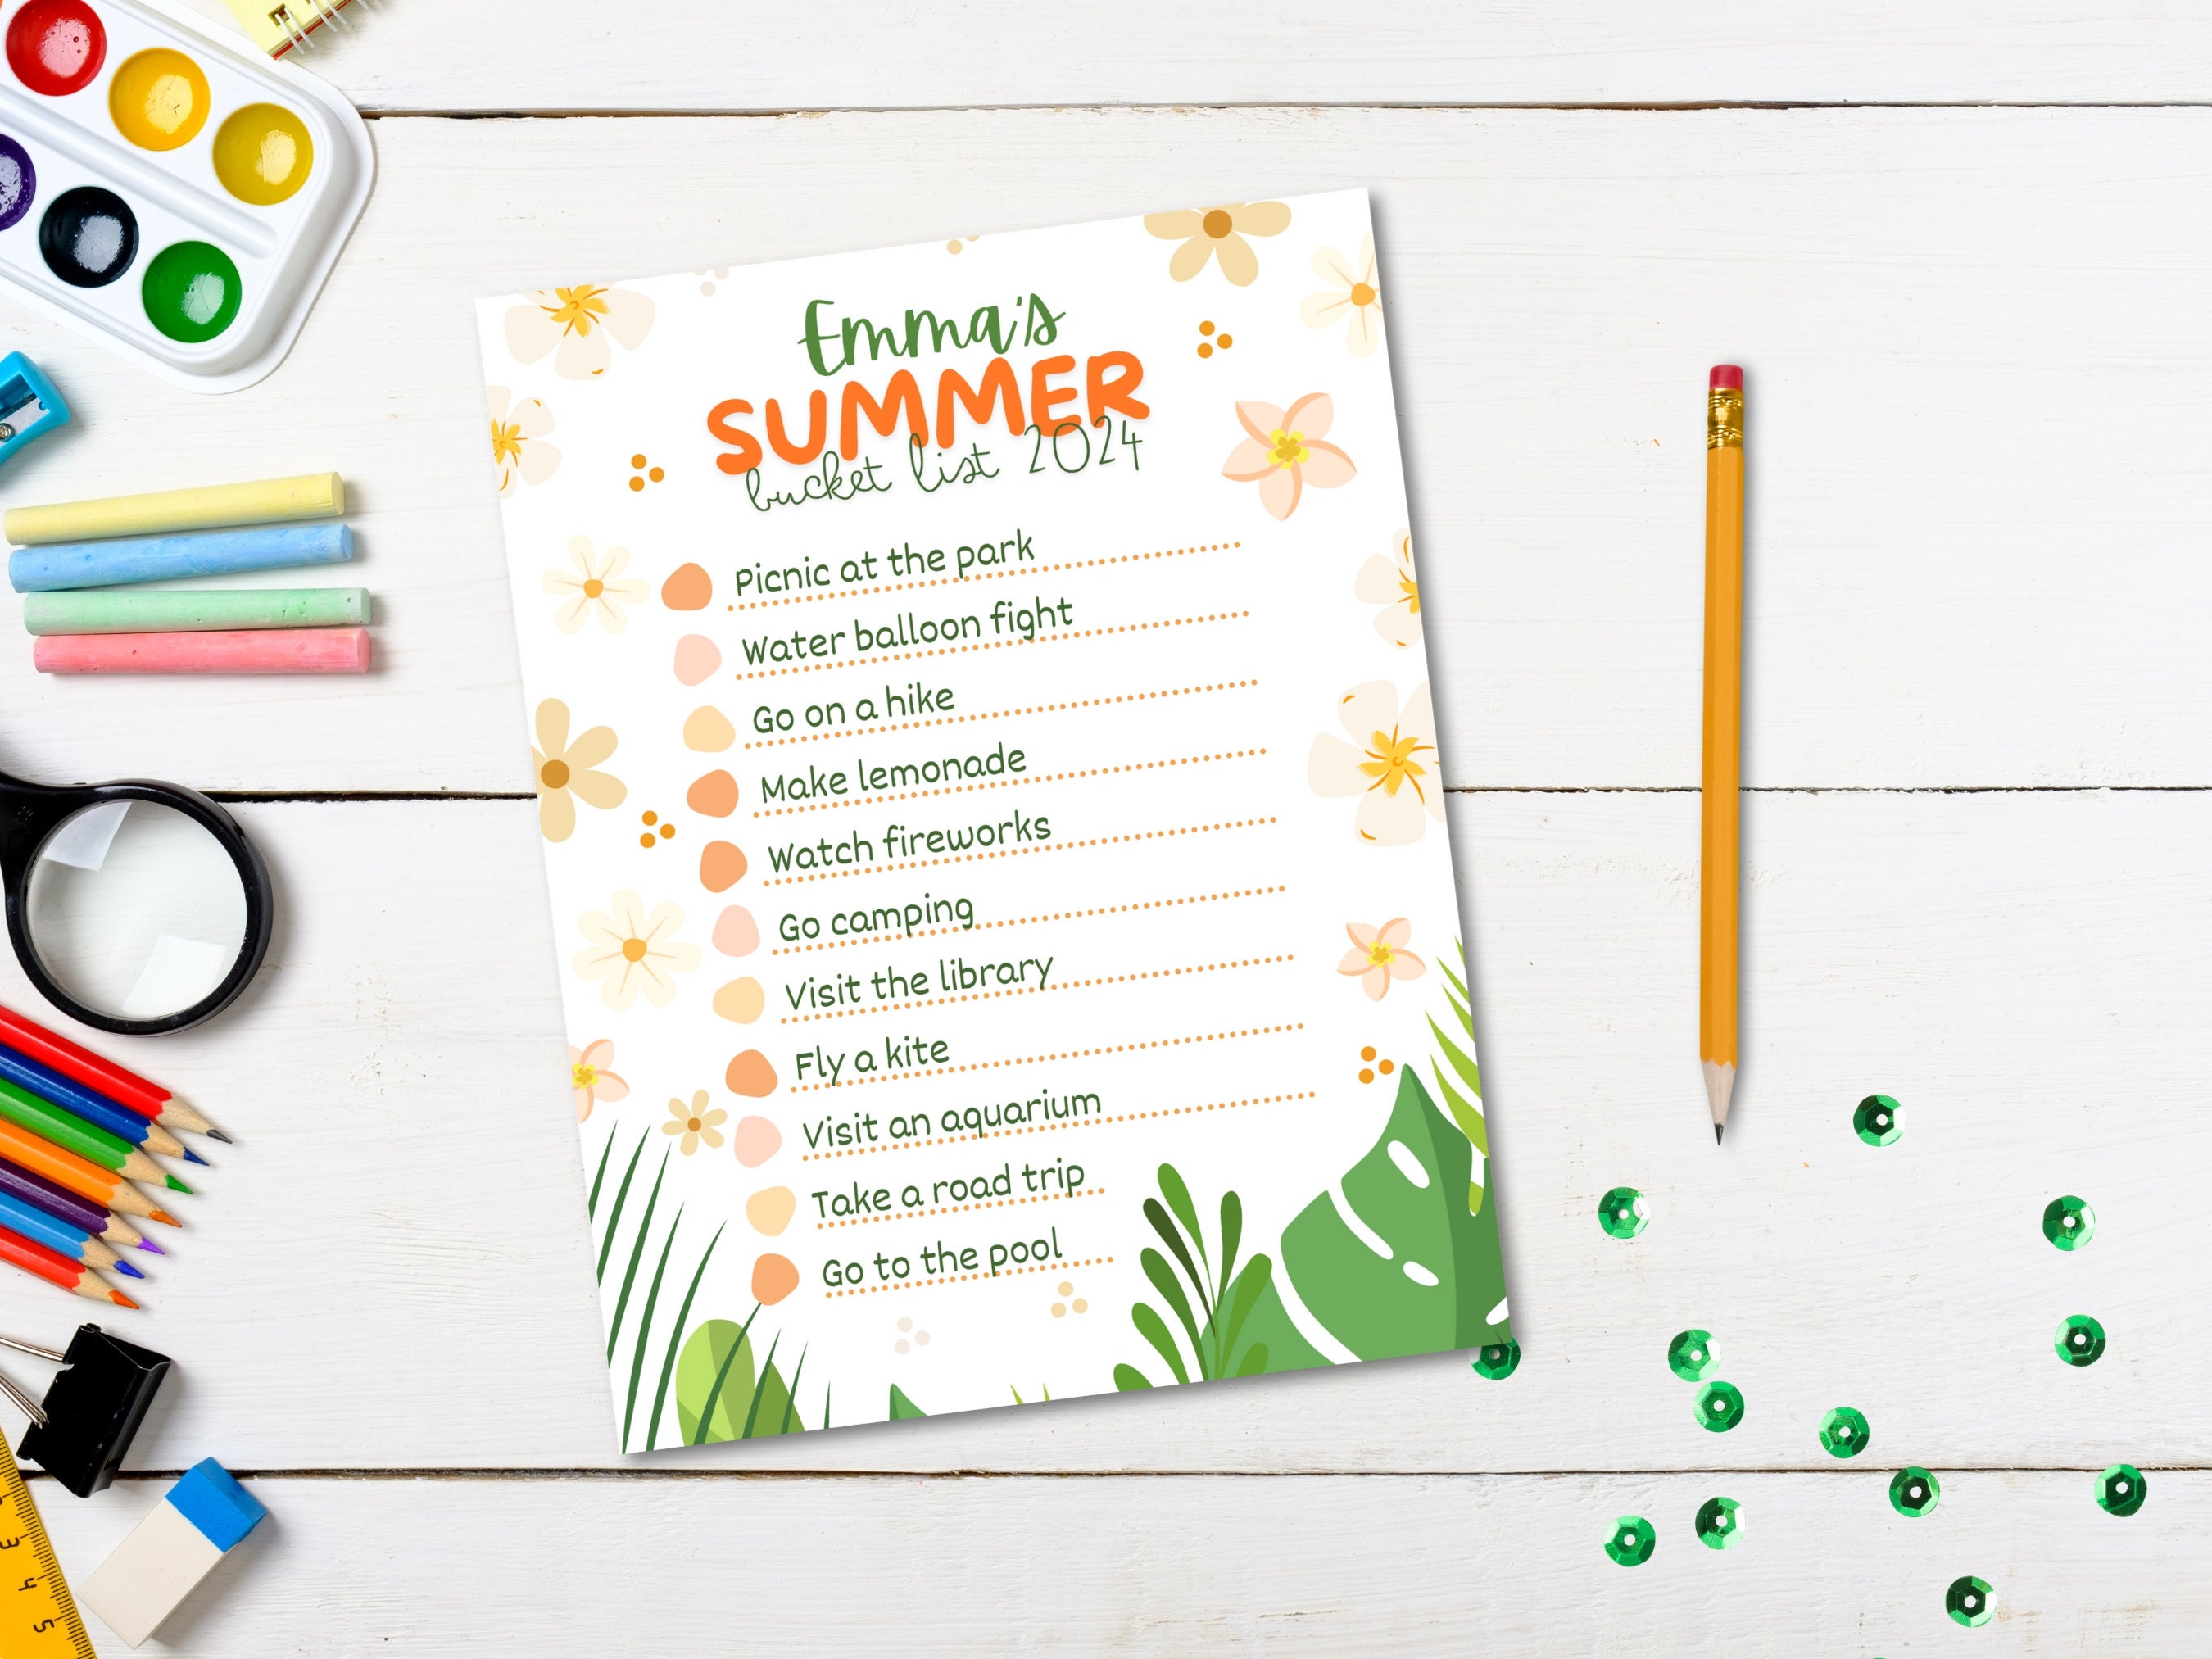 Emma's
SUMMER
bucket list 2024
Picnic at the park
Water balloon fight
Go on a hike
Make lemonade
Watch fireworks
Go camping
Visit the library
Fly a kite
Visit an aquarium
Take a road trip
Go to the pool
3
4
5